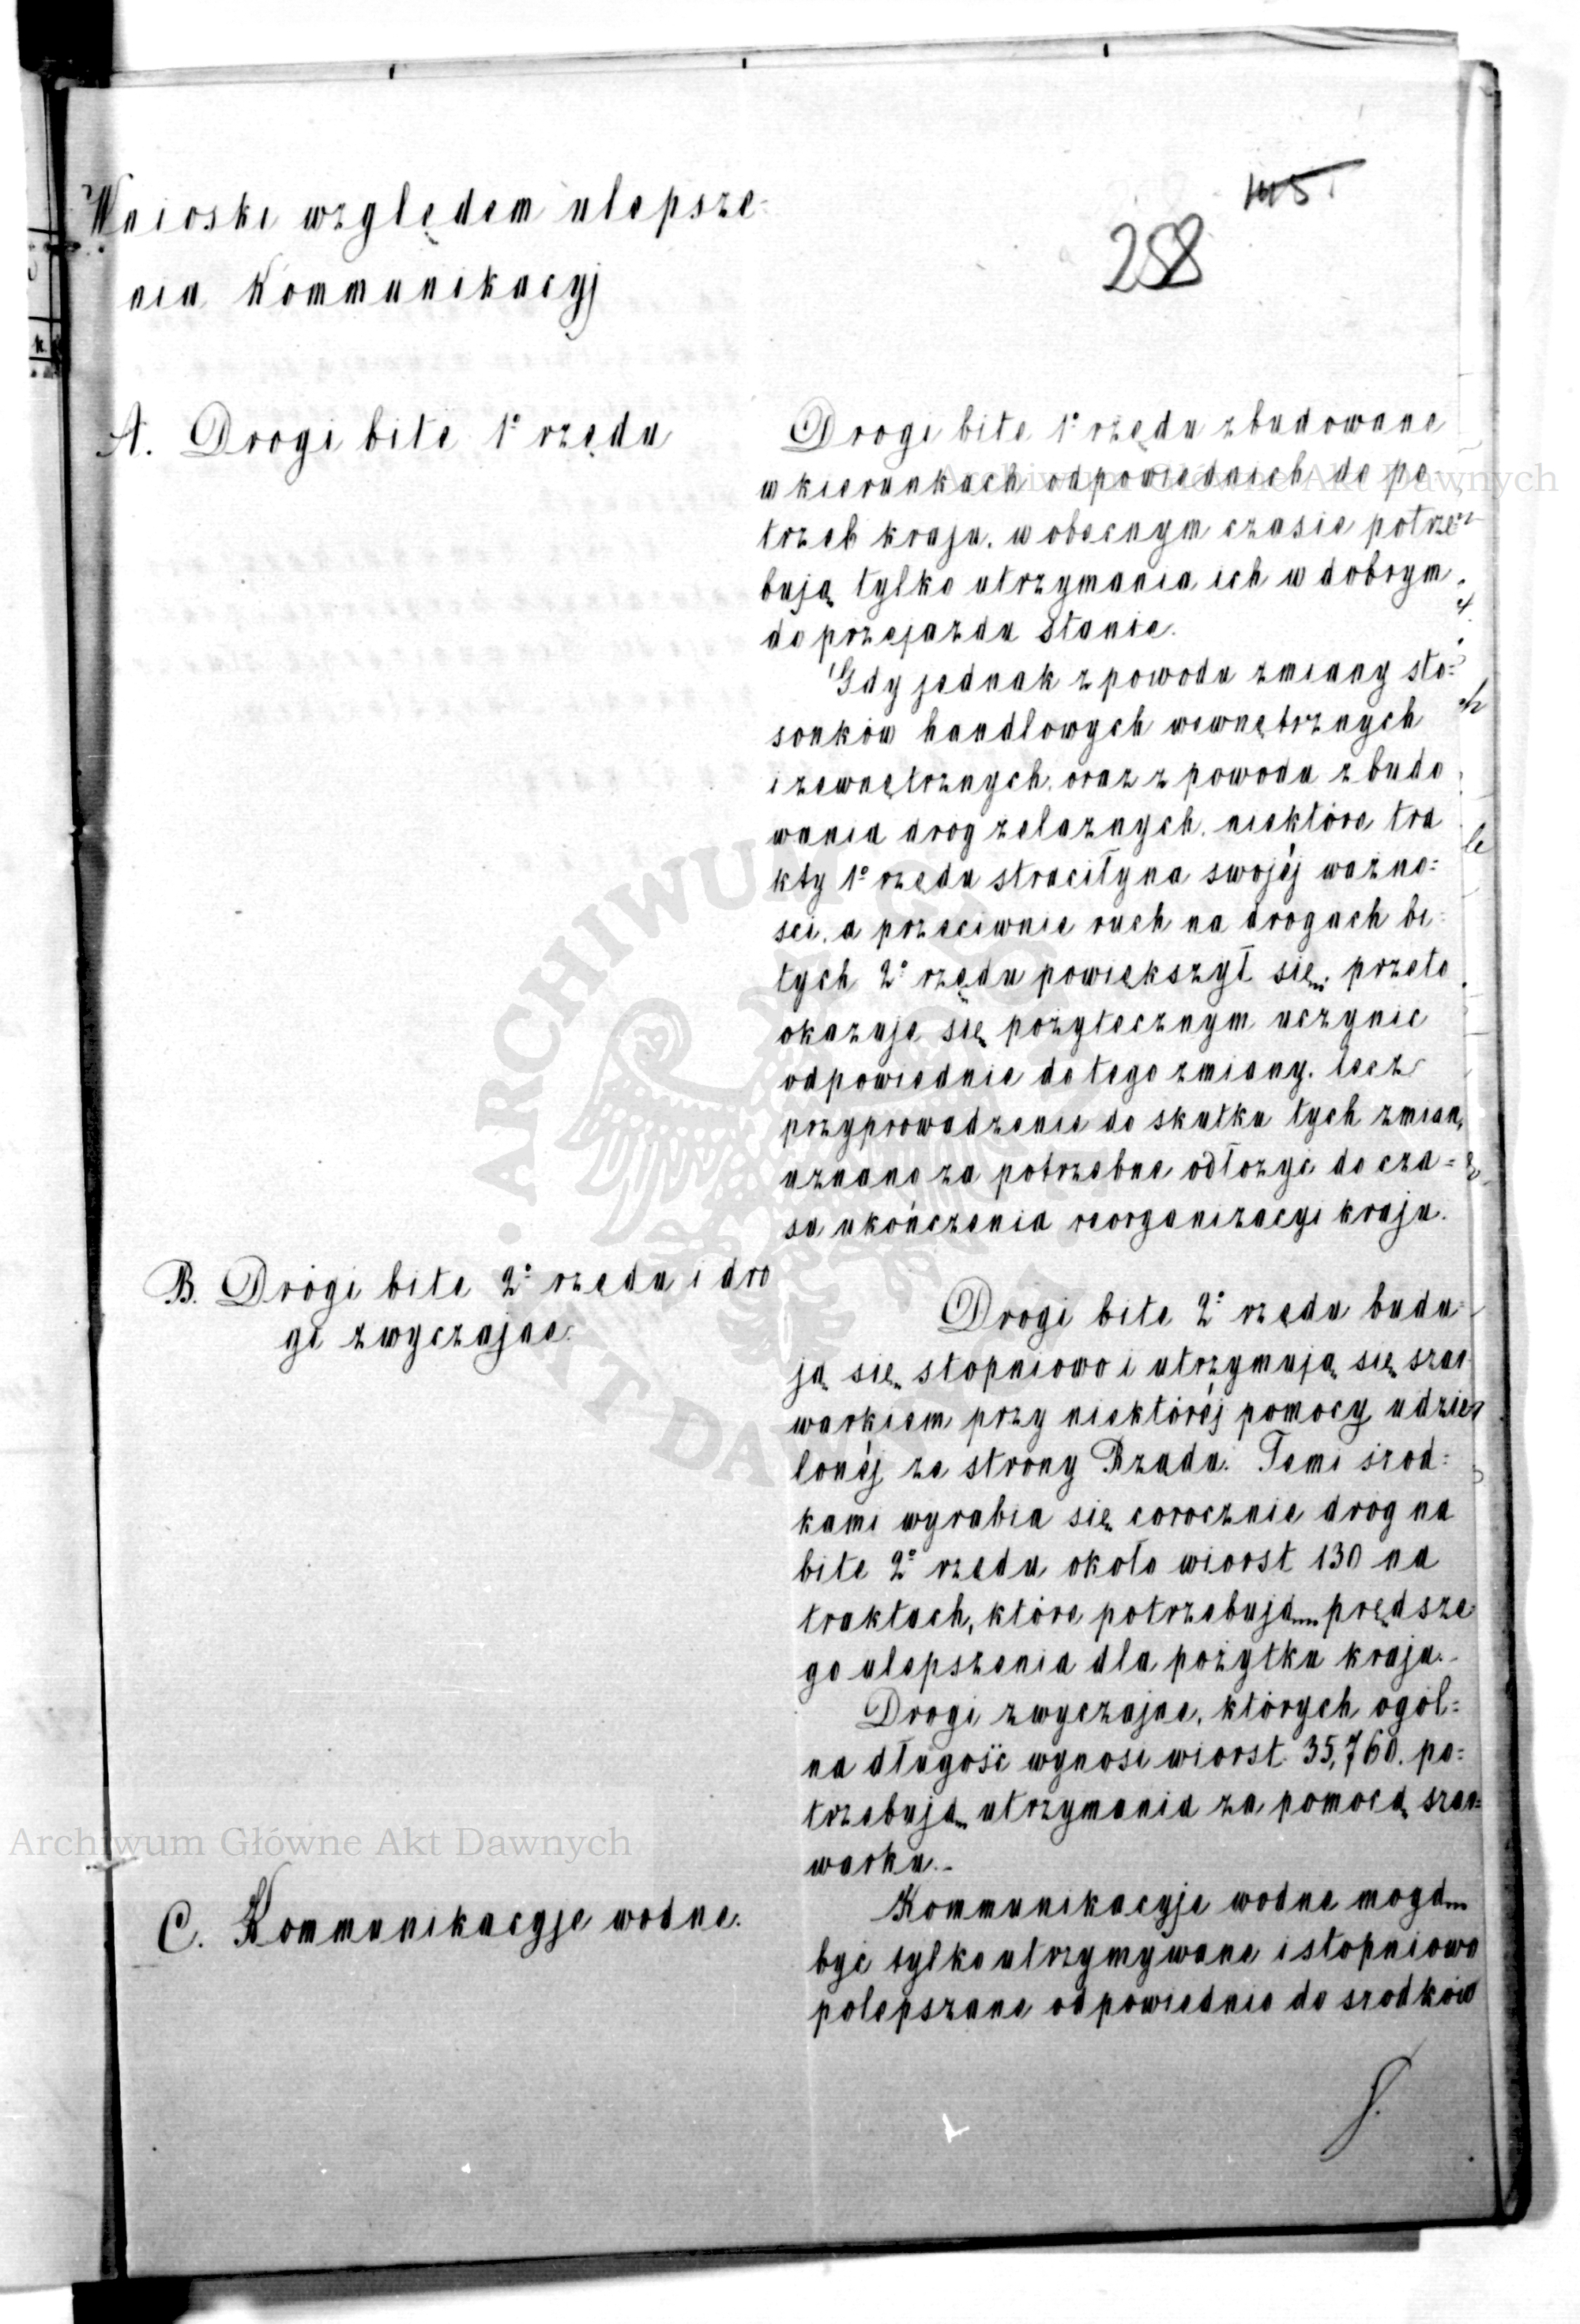 145.
258
Wnioski względem ulepsze=
nia Kommunikacyj
A. Drogi bite 1º rzędu
Drogi bite 1º rzędu zbudowane
w kierunkach odpowiednich do po
trzeb kraju, w obecnym czasie potrze
bują tylko utrzymania ich w dobrym
do przejazdu stanie.
Gdy jednak z powodu zmiany sto=
sonków handlowych wewnętrznych
i zewnętrznych, oraz z powodu zbudo
wania drog żelaznych, niektóre tra
kty 1º rzędu straciły na swojéj ważno=
sci, a przeciwnie ruch na drogach bi=
tych 2º rzędu powiększył się, przeto
okazuje się pożytecznym uczynic
odpowiednie do tego zmiany, lecz
przyprowadzenie do skutku tych zmian,
uznano za potrzebne odłożyć do cza=
su ukończenia reorganizacyi kraju.
B. Drogi bite 2º rzędu i dro
gi zwyczajne.
Drogi bite 2º rzędu budu=
ją się stopniowo i utrzymują się szar
warkiem przy niektóréj pomocy udzie
lonéj ze strony Rządu. Temi środ=
kami wyrabia się corocznie dróg na
bite 2º rzędu około wiorst 130 na
traktach, które potrzebują prędsze
go ulepszenia dla pożytku kraju.
Drogi zwyczajne, których ogól=
na długość wynosi wiorst 35,760. po=
trzebują utrzymania za pomocą szar=
warku.
C. Kommunikacyje wodne.
Kommunikacyje wodne mogą
być tylko utrzymywane i stopniowo
polepszane odpowiednio do srodków
Archiwum Główne Akt Dawnych
Archiwum Główne Akt Dawnych